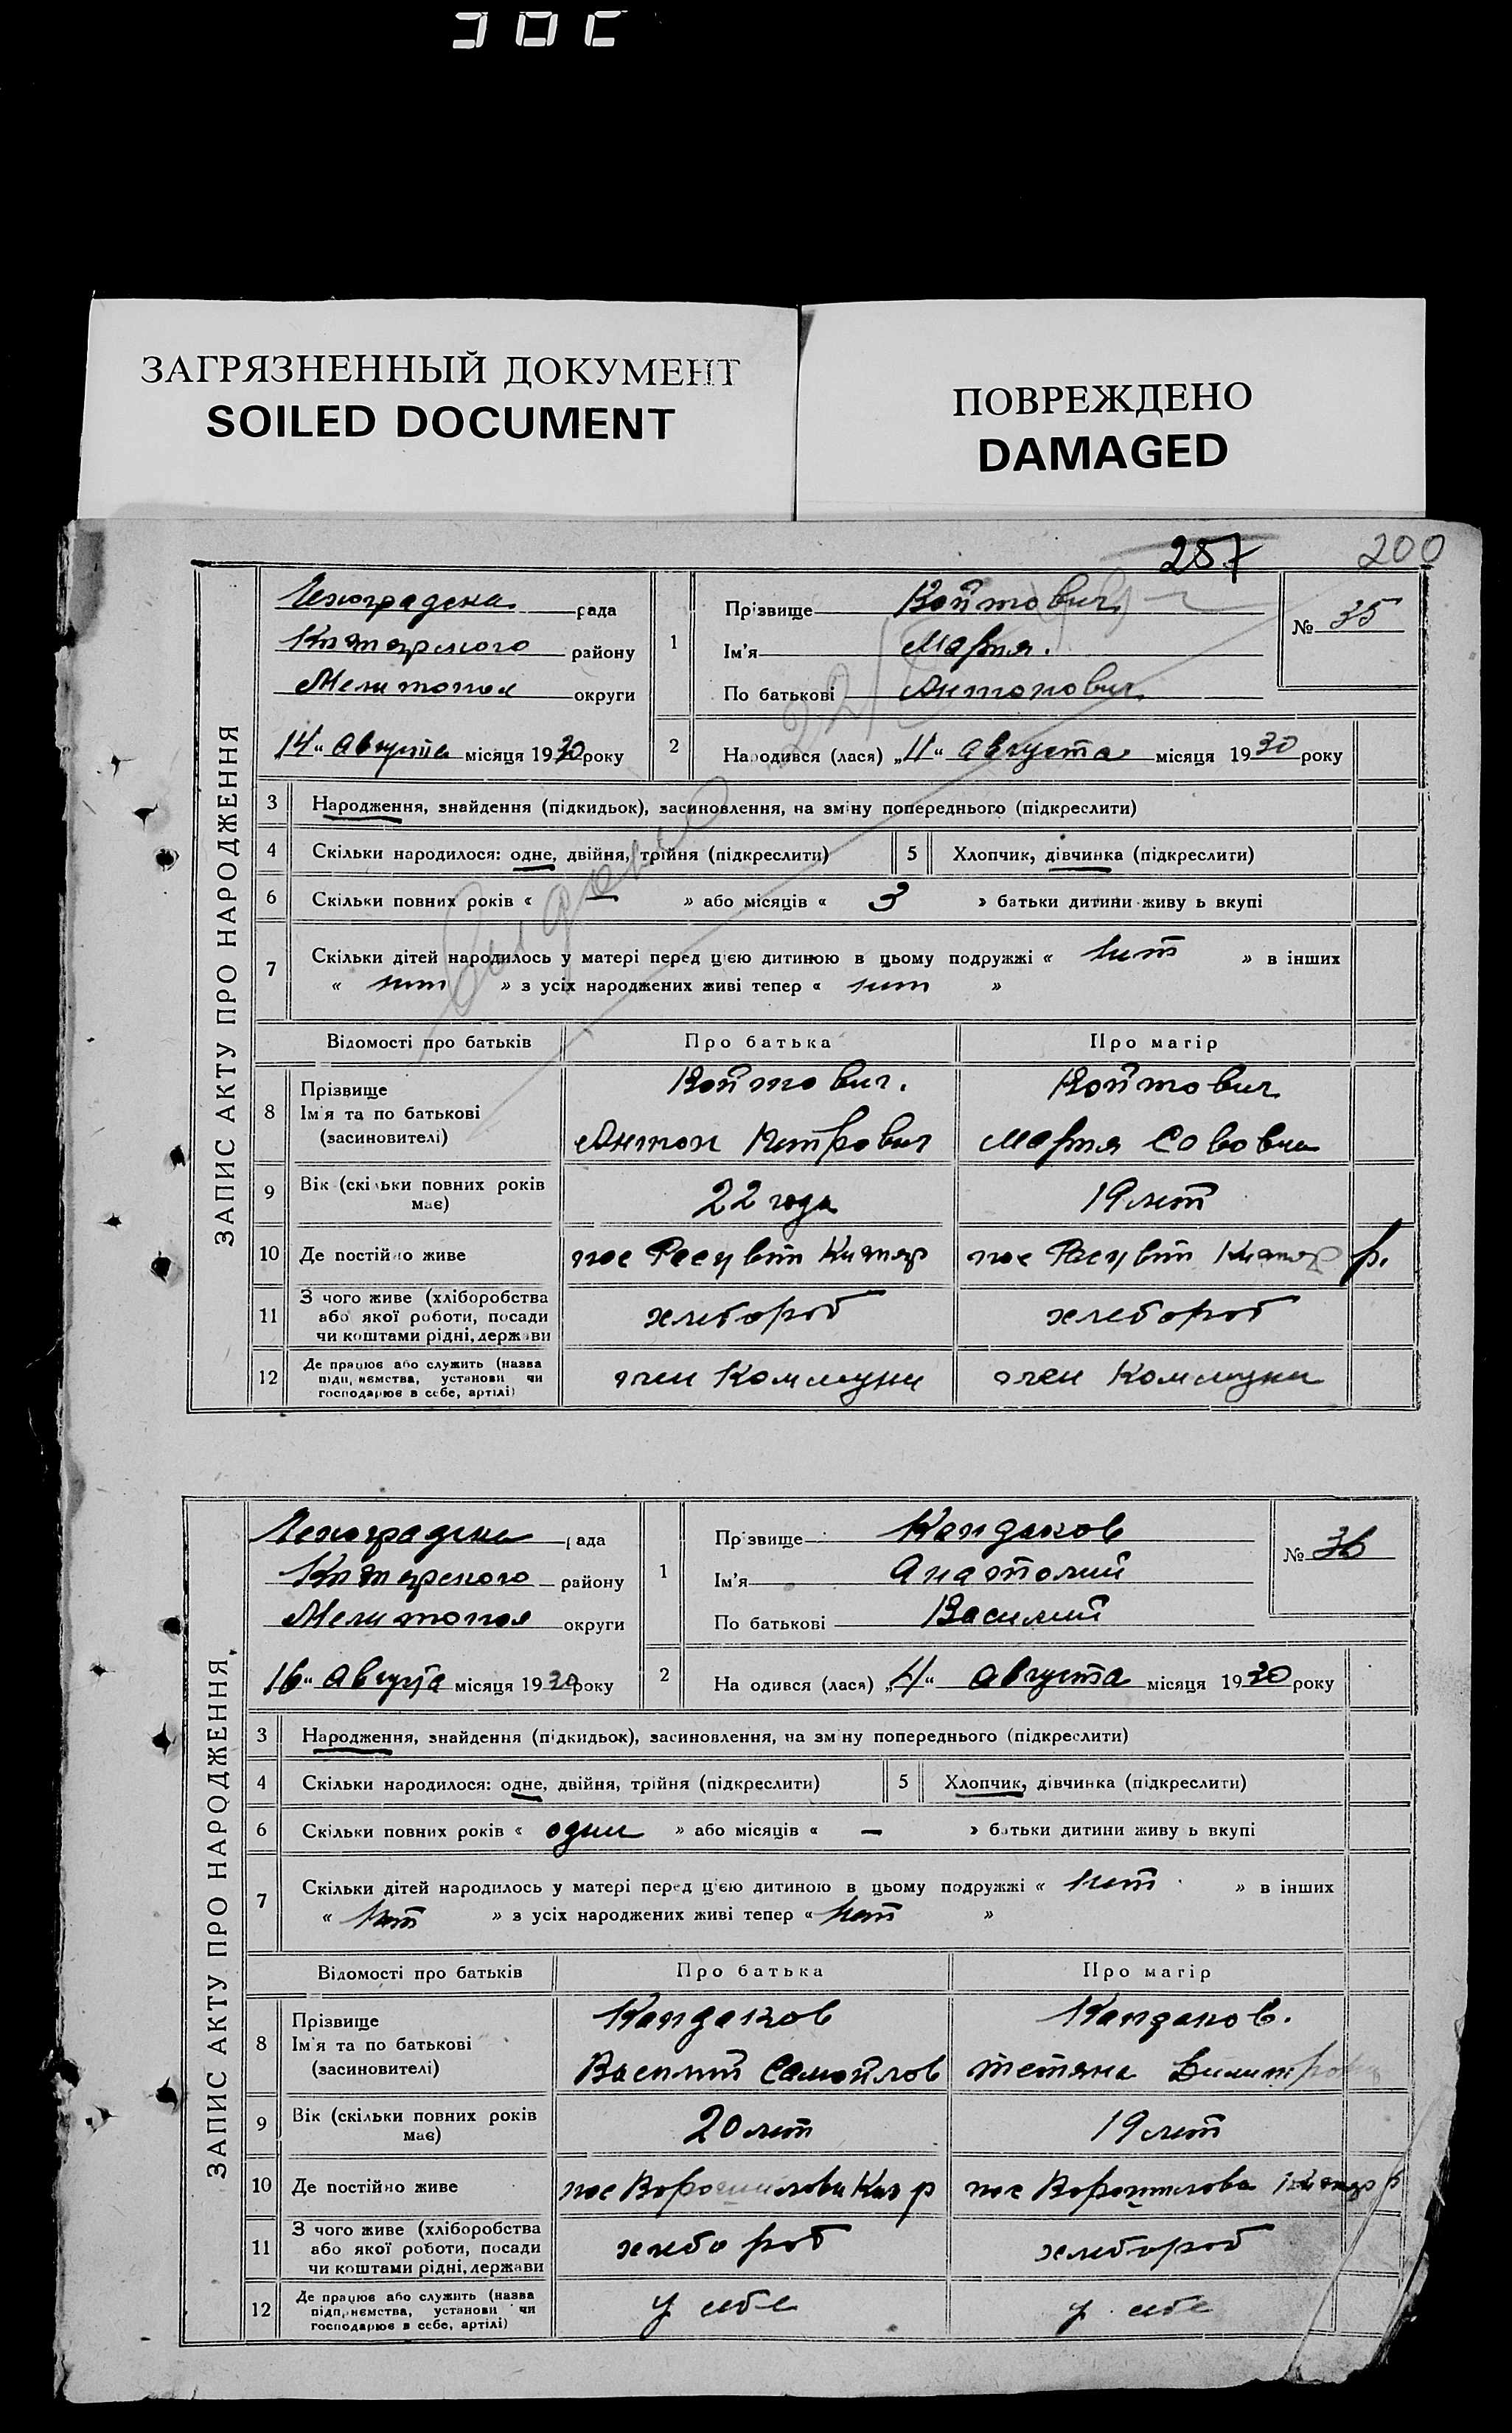 ЗАГРЯЗНЕННЫЙ ДОКУМЕНТ
SOILED DOCUMENT
ПОВРЕЖДЕНО
DAMAGED
257 200
ЗАПИС АКТУ ПРО НАРОДЖЕННЯ
рада
району
Мелитополя округи
14 " Августа місяця 1930 року
1
Прізвище Войтович
Ім'я Мария.
По батькові Антонович
№ 35
2
Народився (лася) „11" августа місяця 1930 року
3 Народження, знайдення (підкидьок), засиновлення, на зміну попереднього (підкреслити)
4 Скільки народилося: одне, двійня, трійня (підкреслити) 5 Хлопчик, дівчинка (підкреслити)
6 Скільки повних років « — » або місяців « 3 » батьки дитини живу ь вкупі
7 Скільки дітей народилось у матері перед цією дитиною в цьому подружжі « нет » в інших
« нет » з усіх народжених живі тепер « нет »
Відомості про батьків Про батька Про матір
8 Прізвище Войтович. Войтович
Ім'я та по батькові
(засиновителі) Антон Петрович Мария Савовна
9 Вік (скільки повних років має) 22 года 19 лет
10 Де постійно живе пос р.
11 З чого живе (хліборобства
або якої роботи, посади
чи коштами рідні, держави хлебороб хлебороб
12 Де працює або служить (назва
підприємства, установи чи
господарює в себе, артілі) член Коммуни член Коммуни
ЗАПИС АКТУ ПРО НАРОДЖЕННЯ
рада
району
Мелитополя округи
16 " Августа місяця 1930 року
1
Прізвище Кандаков
Ім'я Анатолий
По батькові Василий
№ 36
2
На одився (лася) „ " августа місяця 1930 року
3 Народження, знайдення (підкидьок), засиновлення, на зміну попереднього (підкреслити)
4 Скільки народилося: одне, двійня, трійня (підкреслити) 5 Хлопчик, дівчинка (підкреслити)
6 Скільки повних років « один » або місяців « — » батьки дитини живу ь вкупі
7 Скільки дітей народилось у матері перед цією дитиною в цьому подружжі « нет » в інших
« нет » з усіх народжених живі тепер « нет »
Відомості про батьків Про батька Про матір
8 Прізвище Кандаков Кандаков.
Ім'я та по батькові
(засиновителі) Василий Самойлов Тетяна
9 Вік (скільки повних років має) 20 лет 19 лет
10 Де постійно живе пос Ворошилова р пос Ворошилова р
11 З чого живе (хліборобства
або якої роботи, посади
чи коштами рідні, держави хлебороб хлебороб
12 Де працює або служить (назва
підприємства, установи чи
господарює в себе, артілі) у себе у себе